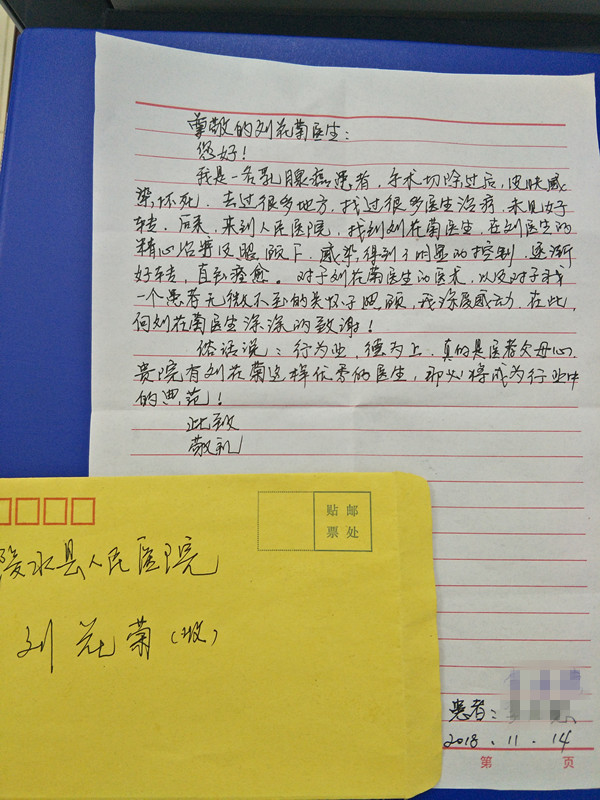 尊敬的刘花菊医生：
您好！
我是一名乳腺癌患者，手术切除过后，皮肤感
染坏死。去过很多地方，找过很多医生治疗，未见好
转。后来，来到人民医院，找到刘花菊医生，在刘医生的
精心治疗及照顾下，感染得到了明显的控制，逐渐
好转，直到痊愈。对于刘花菊医生的医术，以及对于我
一个患者无微不至的关怀于照顾，我深度感动，在此，
向刘花菊医生深深的致谢！
俗话说：行为业，德为上，真的是医者父母心，
贵院有刘花菊这样优秀的医生，那必将成为行业中
的典范！
此致
敬礼
贴 邮
票 处
陵水县人民医院
刘花菊（收）
患者：
2018.11.14
第 页